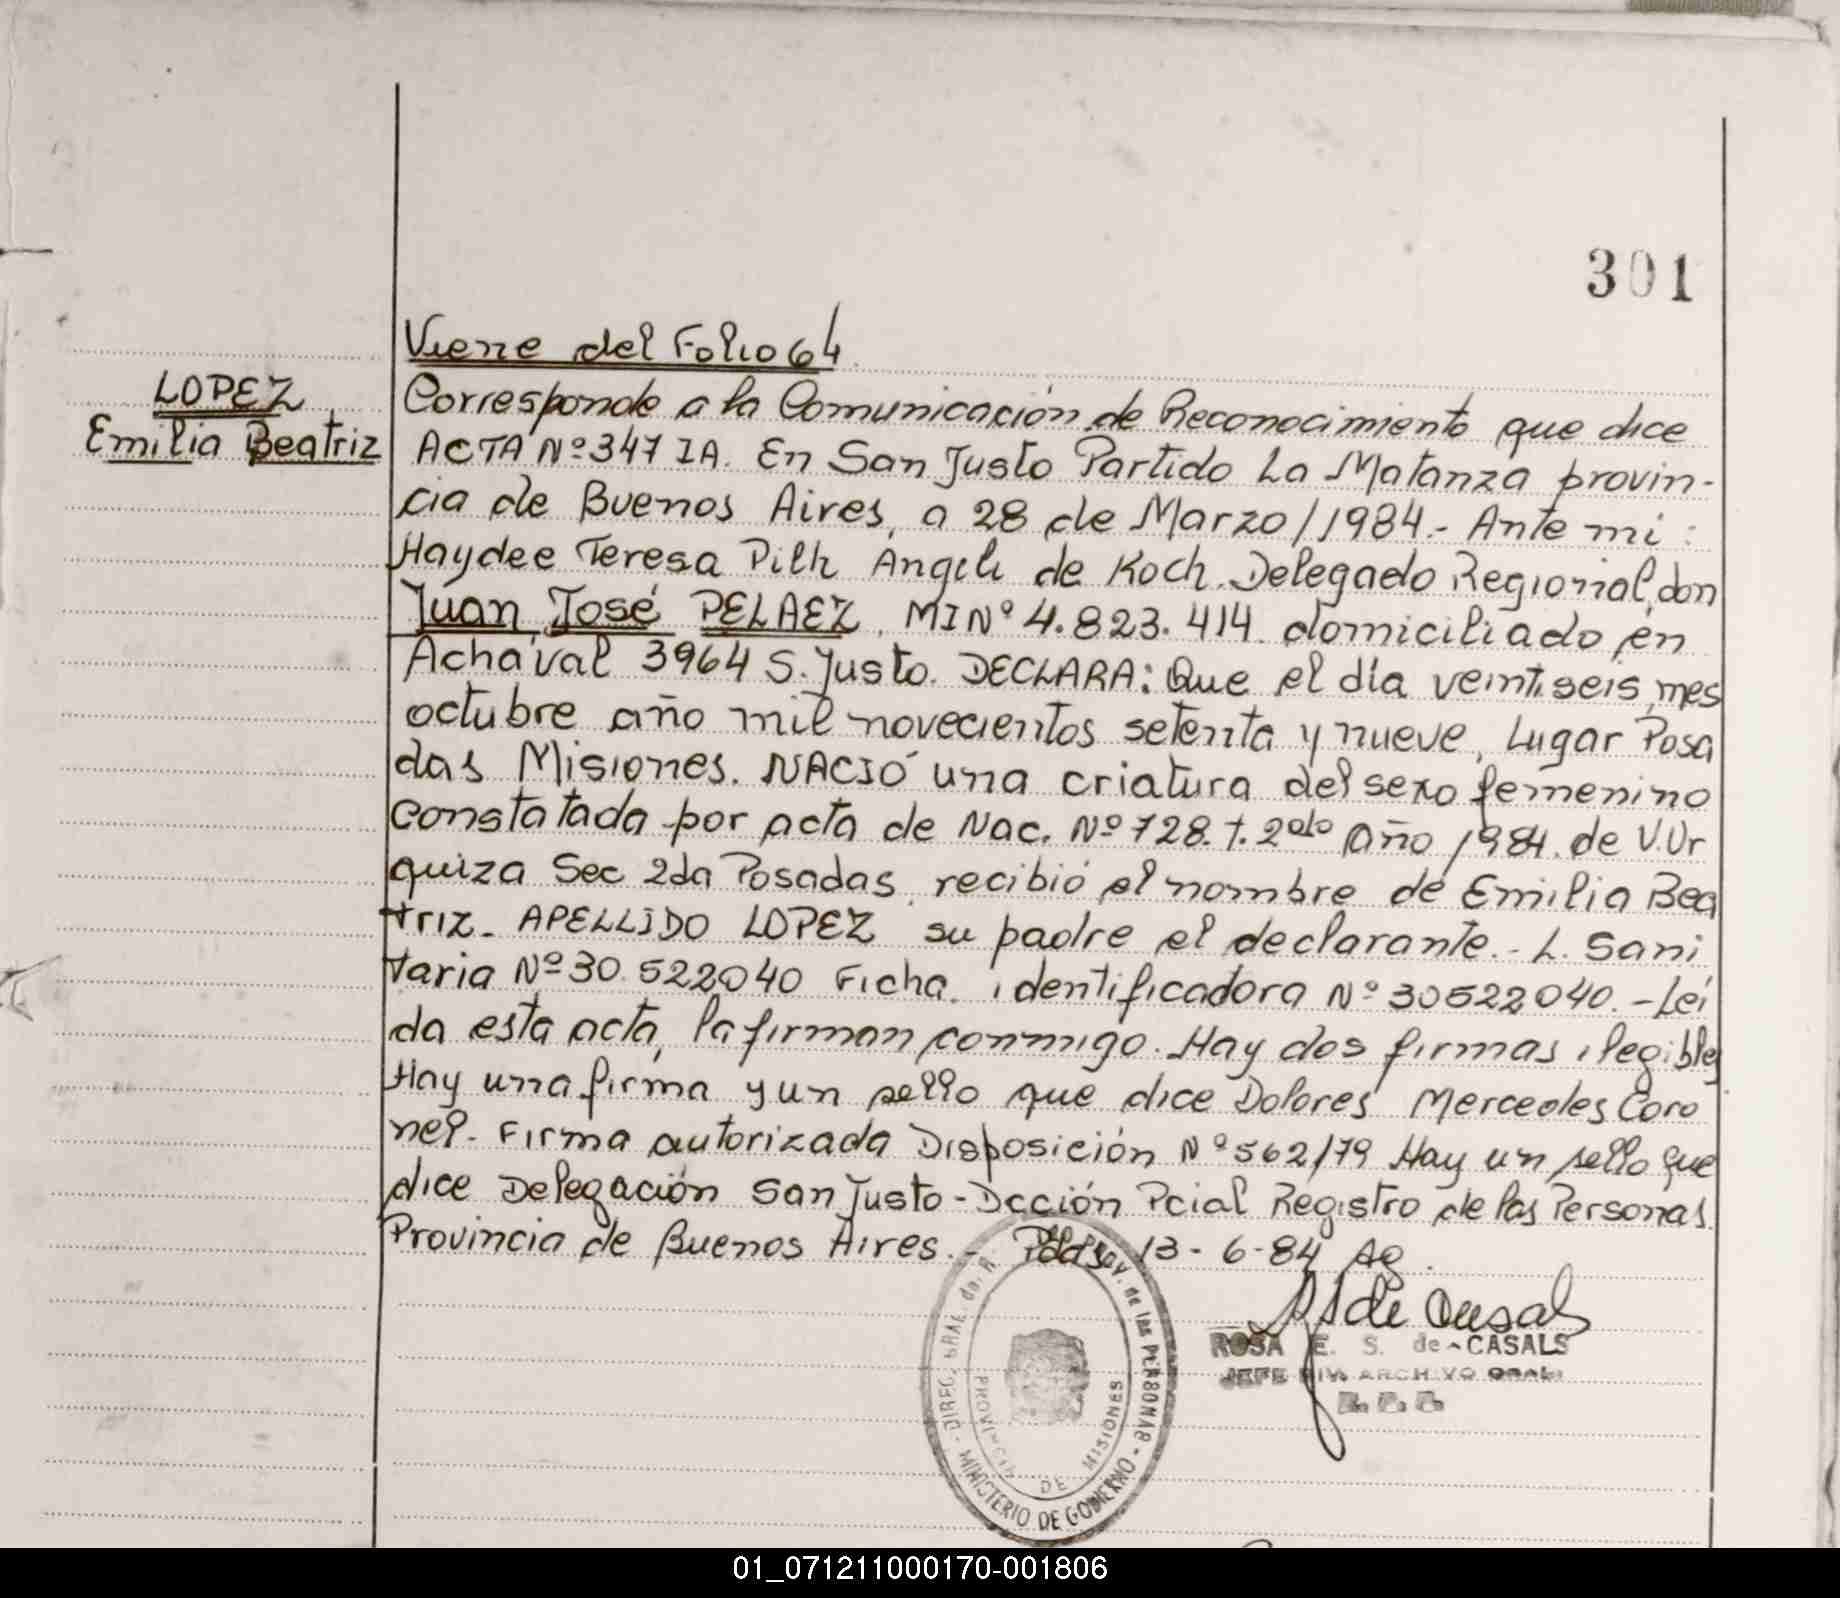 301
Viene del Folio 64
LOPEZ
Emilia Beatriz
Corresponde a la Comunicación de Reconocimiento que dice
ACTA Nº 347 IA. En San Justo Partido La Matanza provin-
cia de Buenos Aires, a 28 de Marzo/1984.- Ante mi:
Haydee Teresa Pilh Angeli de Koch. Delegado Regional, don
Juan José PELAEZ, MI Nº 4.823.414. domiciliado en
Achával 3964 S. Justo. DECLARA: Que el día veintiseis, mes
octubre año mil novecientos setenta y nueve, Lugar Posa
das Misiones. NACIÓ una criatura del sexo femenino
Constatada por acta de Nac. Nº 728. T. 2do Año 1984. de V. Ur
quiza Sec 2da Posadas, recibió el nombre de Emilia Bea
triz. APELLIDO LOPEZ su padre el declarante.- L. Sani
taria Nº 30.522040 Ficha identificadora Nº 30522040.- Leí
da esta acta, la firman conmigo. Hay dos firmas ilegibles
Hay una firma y un sello que dice Dolores Mercedes Coro
nel. Firma autorizada Disposición Nº 562/79 Hay un sello que
dice Delegación San Justo - Dcción Pcial Registro de las Personas
Provincia de Buenos Aires.- 13-6-84
DIREC. GRAL. de las PERSONAS - MINISTERIO DE GOBIERNO
PROVINCIA DE MISIONES
de Casals
ROSA E. S. de CASALS
JEFE DIV. ARCHIVO GRAL.
01_071211000170-001806